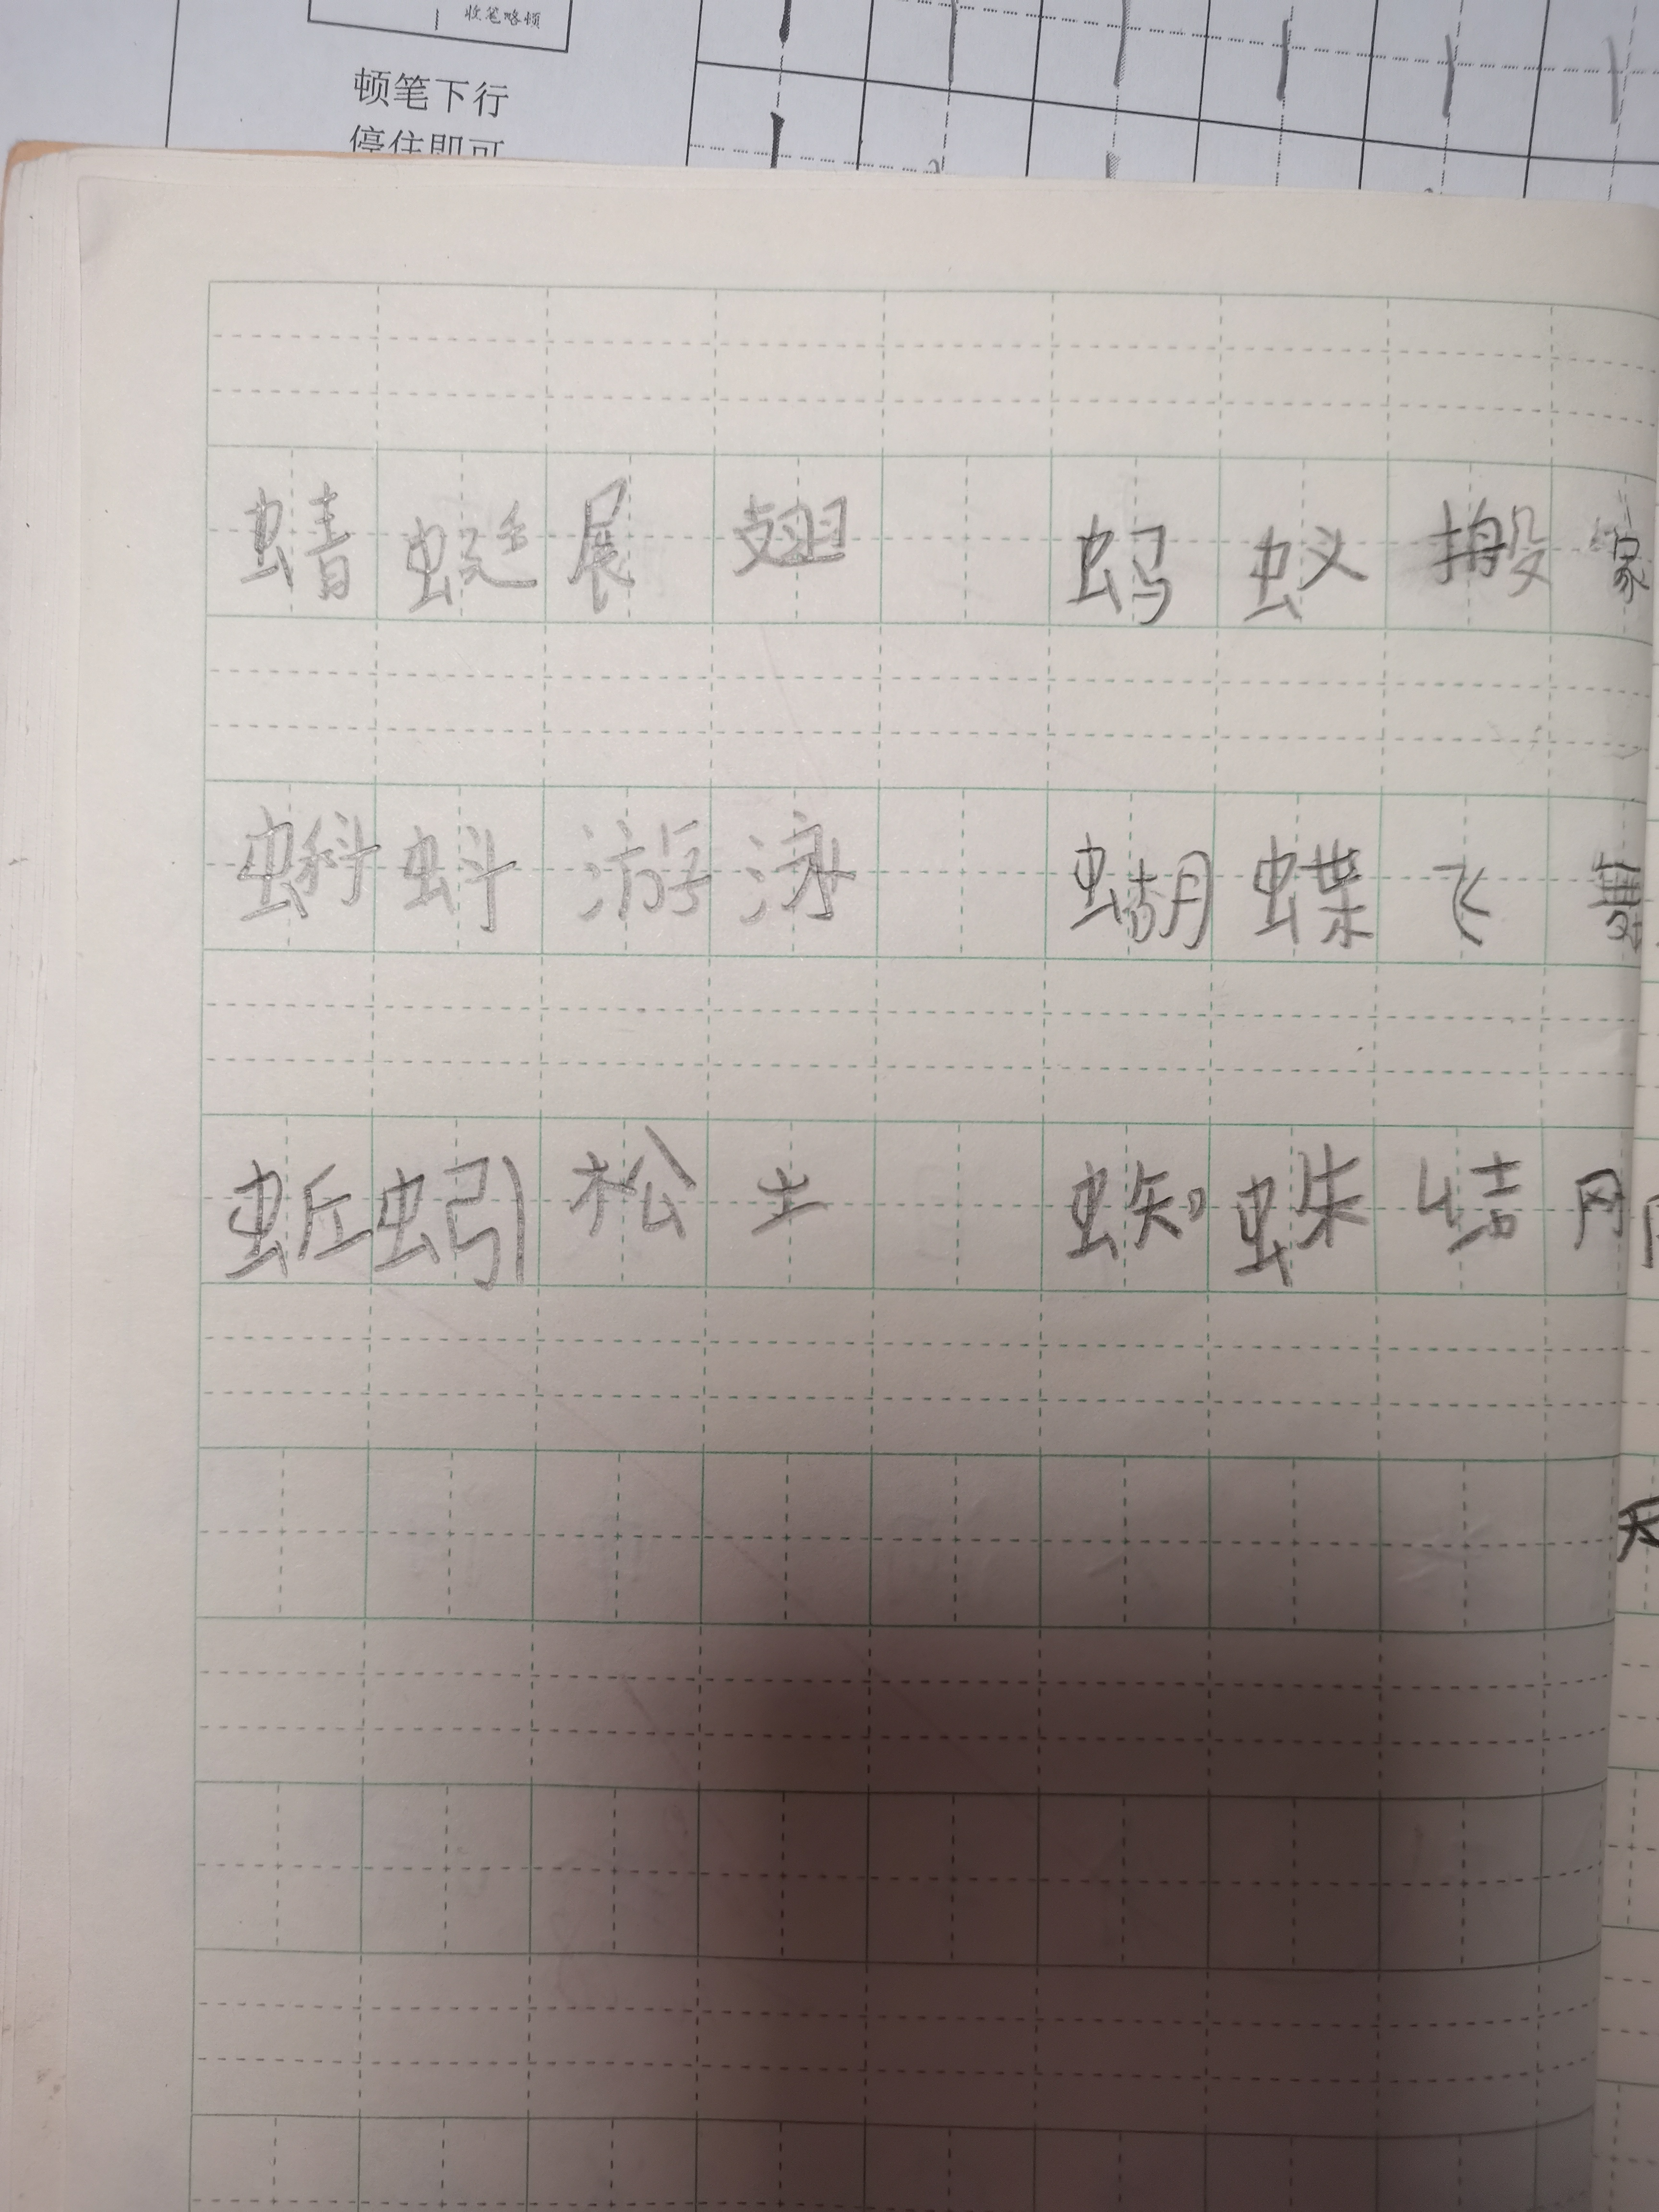 收笔略顿
顿笔下行
停住即可
蜻蜓展翅 蚂蚁搬家
蝌蚪游泳 蝴蝶飞
蚯蚓松土 蜘蛛结网
天